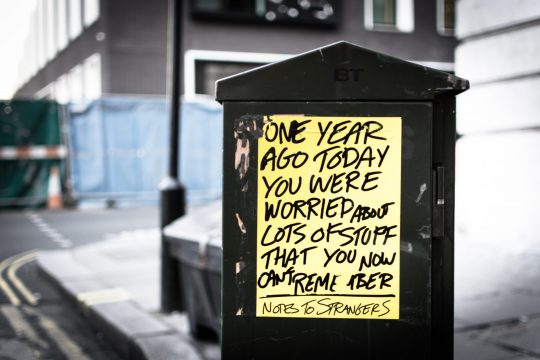 BT
ONE YEAR
AGO TODAY
YOU WERE
WORRIED ABOUT
LOTS OF STUFF
THAT YOU NOW
CANT REMEMBER
NOTES TO STRANGERS